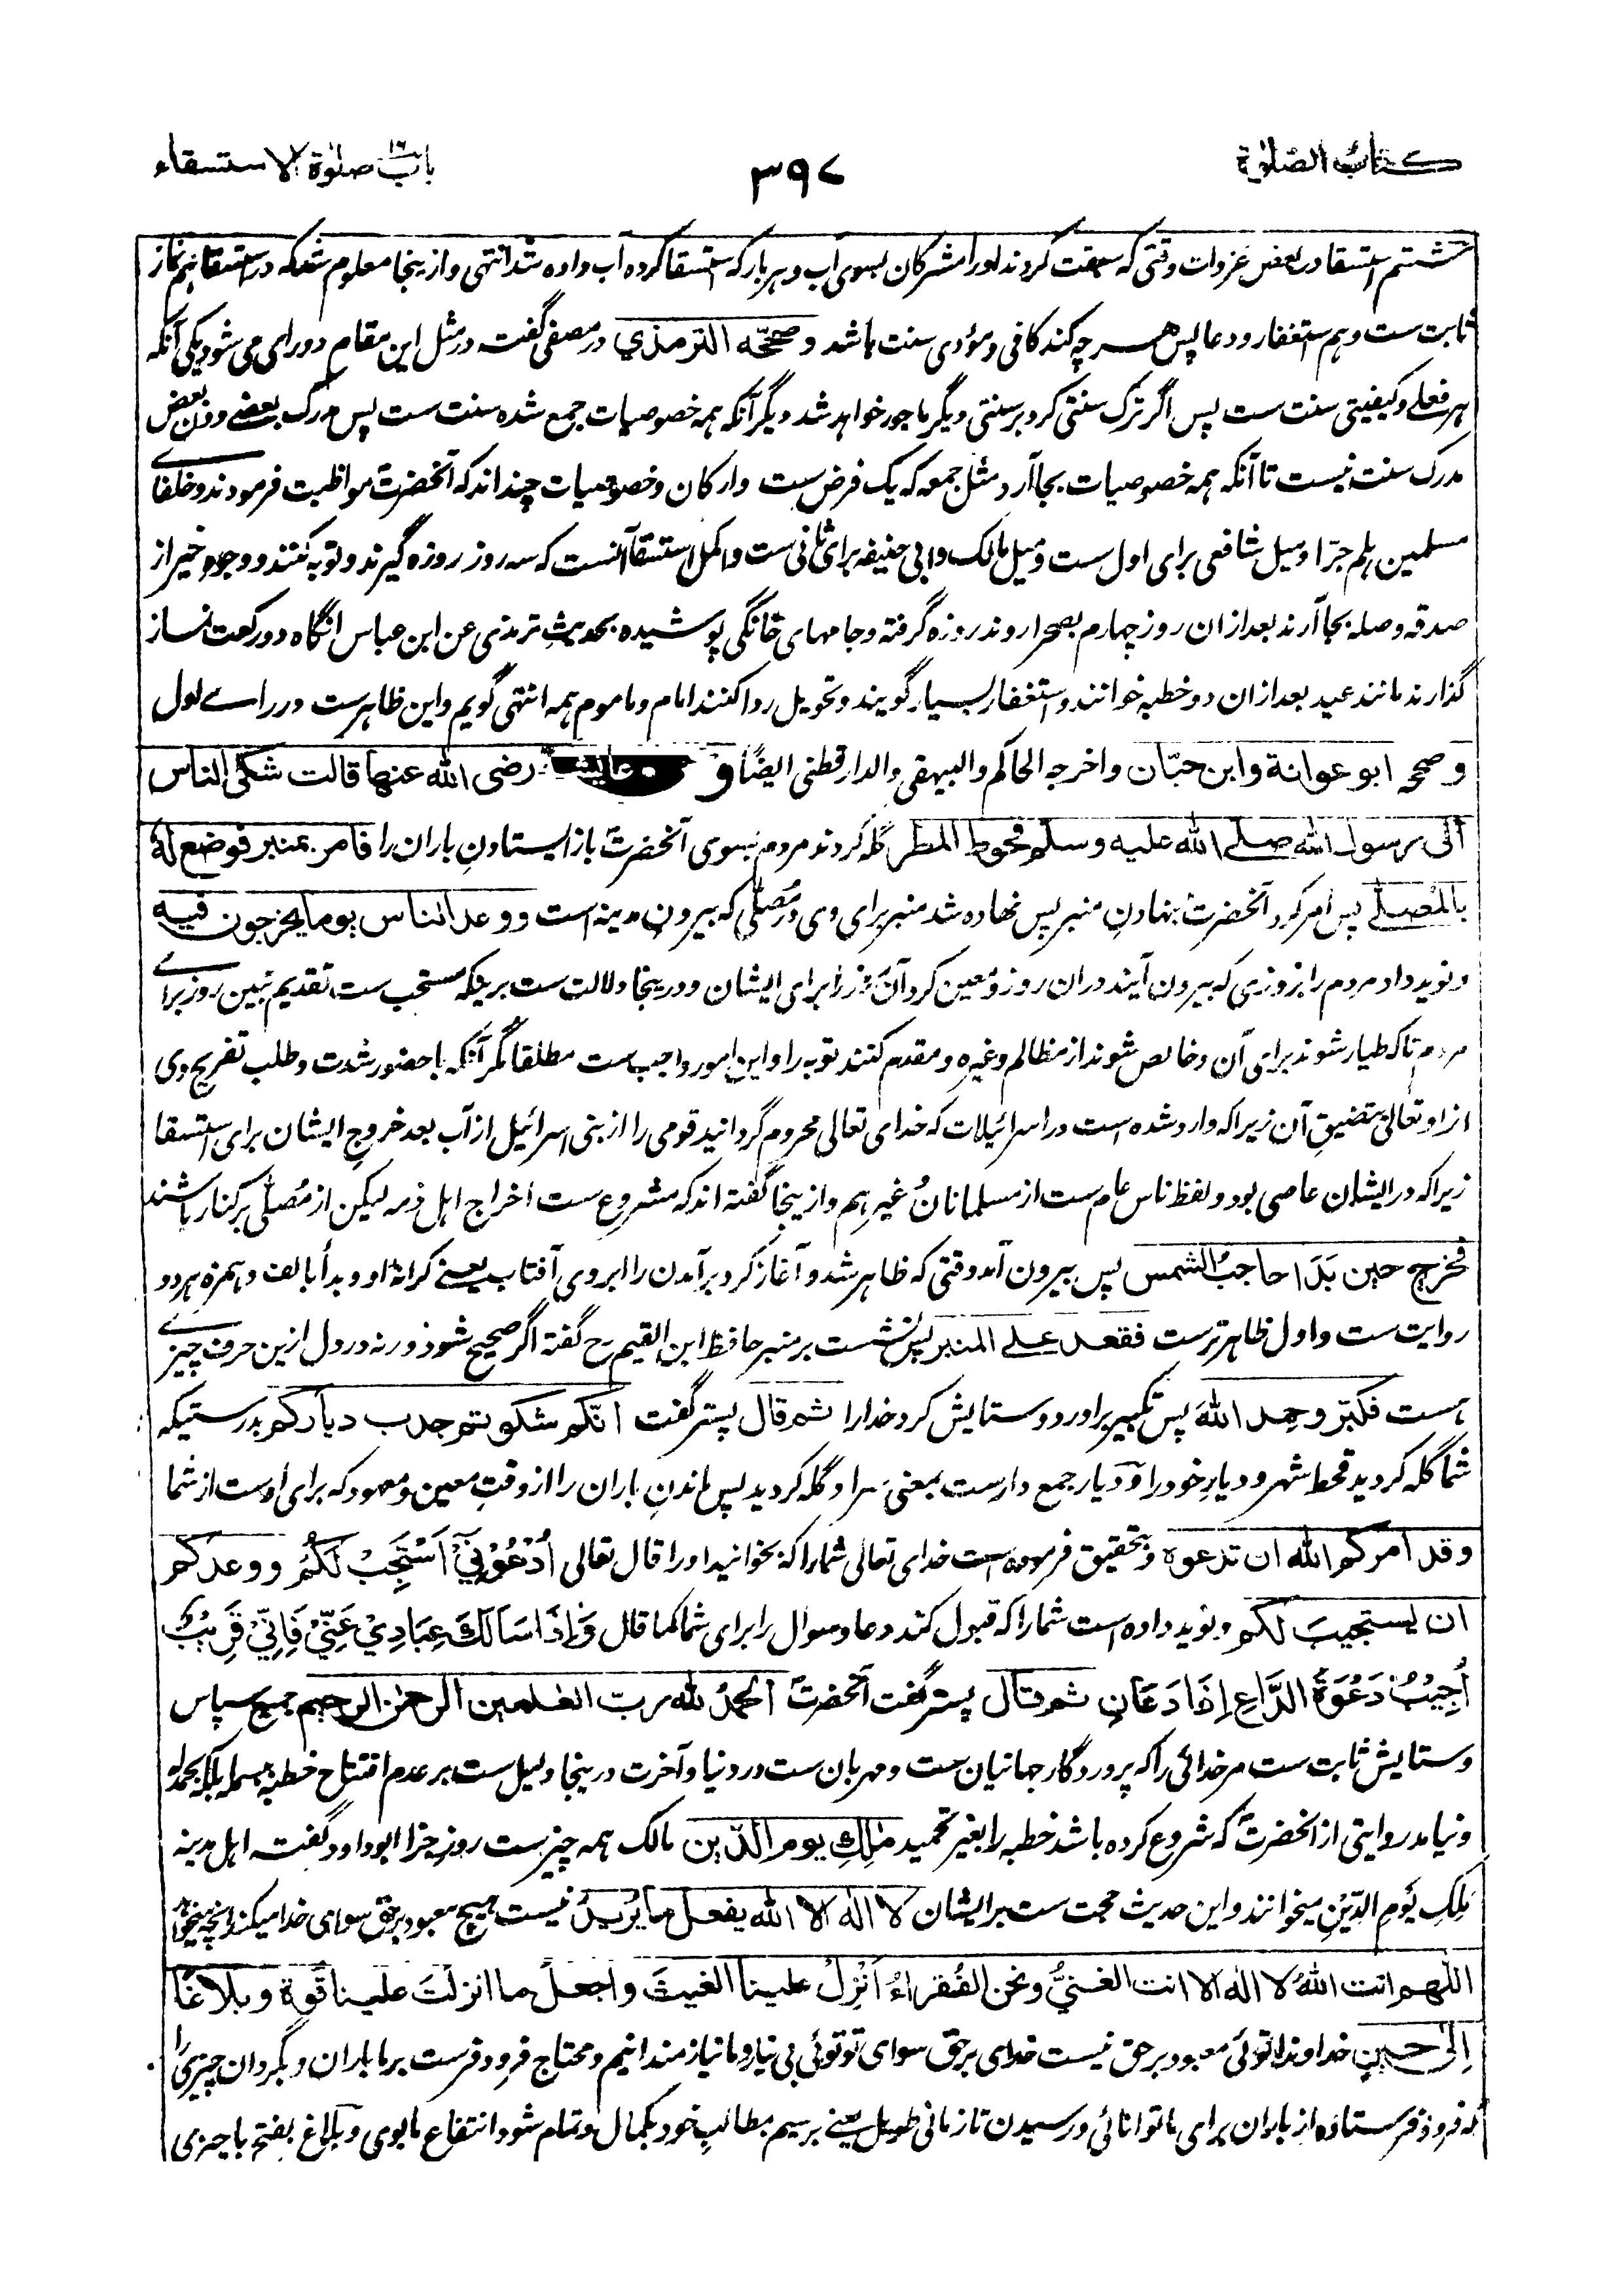 کتاب الصّلوٰة
۳۹۷
باب ۱۶ صلوٰة الاستسقاء
ششتم استسقا در بعض غزوات وقتی که سبقت کردند او را مشرکان بسوی آب و هر بار که استسقا کرده آب داده شد انتهی و ازینجا معلوم شد که در استسقا هم نماز
ثابت ست و هم استغفار و دعا پس هر چه کند کافی و مؤدی سنت باشد وصححّه الترمذي در مصفی گفت در مثل این مقام دو رای می شود یکی آنکه
هر فعلے و کیفیتی سنت ست پس اگر ترک سنتی کرد بر سنتی دیگر ماجور خواهد شد دیگر آنکه همه خصوصیات جمع شده سنت ست پس مدرک بعضے دون بعض
مدرک سنت نیست تا آنکه همه خصوصیات بجا آرد مثل جمعه که یک فرض ست و ارکان و خصوصیات چند اند که آنحضرتؐ مواظبت فرمودند و خلفاے
مسلمین هلم جرّا و میل شافعی برای اول ست و میل مالک و ابی حنیفه برای ثانی ست و اکمل استسقا آنست که سه روز روزه گیرند و توبه کنند و وجوه خیر از
صدقه و صله بجا آرند بعد ازان روز چهارم بصحرا روند روزه گرفته و جامهای خانگی پوشیده بحدیث ترمذی عن ابن عباس انگاه دو رکعت نماز
گذارند مانند عید بعد ازان دو خطبه خوانند و استغفار بسیار گویند و تحویل ردا کنند امام و ماموم همه انتهی گویم و این ظاهر ست در راے اول
وصححه ابو عوانة وابن حبّان واخرجه الحاکم والبیهقی والدارقطنی ایضًا و عن عایشة رضی الله عنها قالت شکی الناس
الی رسول الله صلے الله علیه وسلم قحوط المطر گله کردند مردم بسوی آنحضرتؐ باز ایستادنِ باران را فامر بمنبر فوضع لهٗ
بالمُصلّے پس امر کرد آنحضرتؐ بنهادنِ منبر پس نهاده شد منبر برای وی در مُصلّی که بیرونِ مدینه است ووعد الناس یوما یخرجون فیه
و نوید داد مردم را بروزی که بیرون آیند دران روز و معین کرد آن روز را برای ایشان و درینجا دلالت ست برینکه مستحب ست تقدیم تبیین روز براے
مردم تا که طیار شوند برای آن و خالص شوند از مظالم و غیره و مقدم کنند توبه را و این امور واجب ست مطلقا مگر آنکه با حضور شدت و طلب تفریح وی
از او تعالیٰ بتضیقِ آن زیرا که وارد شده است در اسرائیلات که خدای تعالی محروم گردانید قومی را از بنی اسرائیل از آب بعد خروجِ ایشان برای استسقا
زیرا که در ایشان عاصی بود و لفظ ناس عام ست از مسلمانان و غیرِ هم و ازینجا گفته اند که مشروع ست اخراج اهل ذمه لیکن از مُصلّی بر کنار باشند
فخرج حین بَدَا حاجبُ الشمس پس بیرون آمد وقتی که ظاهر شد و آغاز کرد برآمدن را ابروی آفتاب یعنے کرانهٔ او و بدأ بالف و همزه هر دو
روایت ست و اول ظاهر تر ست فقعد علے المنبر پس نشست بر منبر حافظ ابن القیم رح گفته اگر صحیح شود ورنه در دل ازین حرف چیزے
هست فکبّر وحمد اللهَ پس تکبیر براورد و ستایش کرد خدا را ثم قال پستر گفت انّکم شکوتم جدب دیارکم بدرستیکه
شما گله کردید قحط شهر و دیارِ خود را و دیار جمع دارست بمعنی سرا و گله کردید پس ماندنِ باران را از وقتِ معین و معهود که برای اوست از شما
وقد امرکم الله ان تدعوه و بتحقیق فرموده است خدای تعالی شما را که بخوانید او را قال تعالی اُدْعُوْنِيْٓ اَسْتَجِبْ لَکُمْ ووعدکم
ان یستجیبَ لکم و نوید داده است شما را که قبول کند دعا و سوال را برای شما کما قال وَاِذَا سَاَلَكَ عِبَادِيْ عَنِّيْ فَاِنِّيْ قَرِيْبٌ
اُجِيْبُ دَعْوَةَ الدَّاعِ اِذَا دَعَانِ ثم قال پستر گفت آنحضرتؐ الحمدُ لله ربّ العٰلمین الرحمٰن الرحیم جمیع سپاس
و ستایش ثابت ست مر خدائی را که پروردگار جهانیان ست و مهربان ست در دنیا و آخرت درینجا دلیل ست بر عدم افتتاح خطبه ببسمله بلکه بحمدله
و نیامد روایتی از انحضرتؐ که شروع کرده باشد خطبه را بغیر تحمید مٰلِكِ یوم الدّین مالک همه چیز ست روزِ جزا ابو داود گفته اهل مدینه
مَلِكِ يَوْمِ الدِّيْنِ میخوانند و این حدیث حجت ست بر ایشان لا اله الا الله یفعل ما یُریدُ نیست هیچ معبود برحق سوای خدا میکند آنچه میخواهد
اللهم انت اللهُ لا اله الا انت الغنيُّ ونحن الفُقراءُ اَنْزِلْ علینا الغیثَ واجعلْ ما انزلتَ علینا قوة وبلاغًا
اِلیٰ حین خداوندا توئی معبود برحق نیست خدای برحق سوای تو توئی بی نیاز و ما نیازمندانیم و محتاج فرود فرست بر ما باران و بگردان چیزیرا
که فرود فرستاده از باران برای ما توانائی و رسیدن تا زمانی طویل یعنے برسیم مطالبِ خود بکمال و تمام شود انتفاع ما بوی و بلاغ بفتح با چیزی